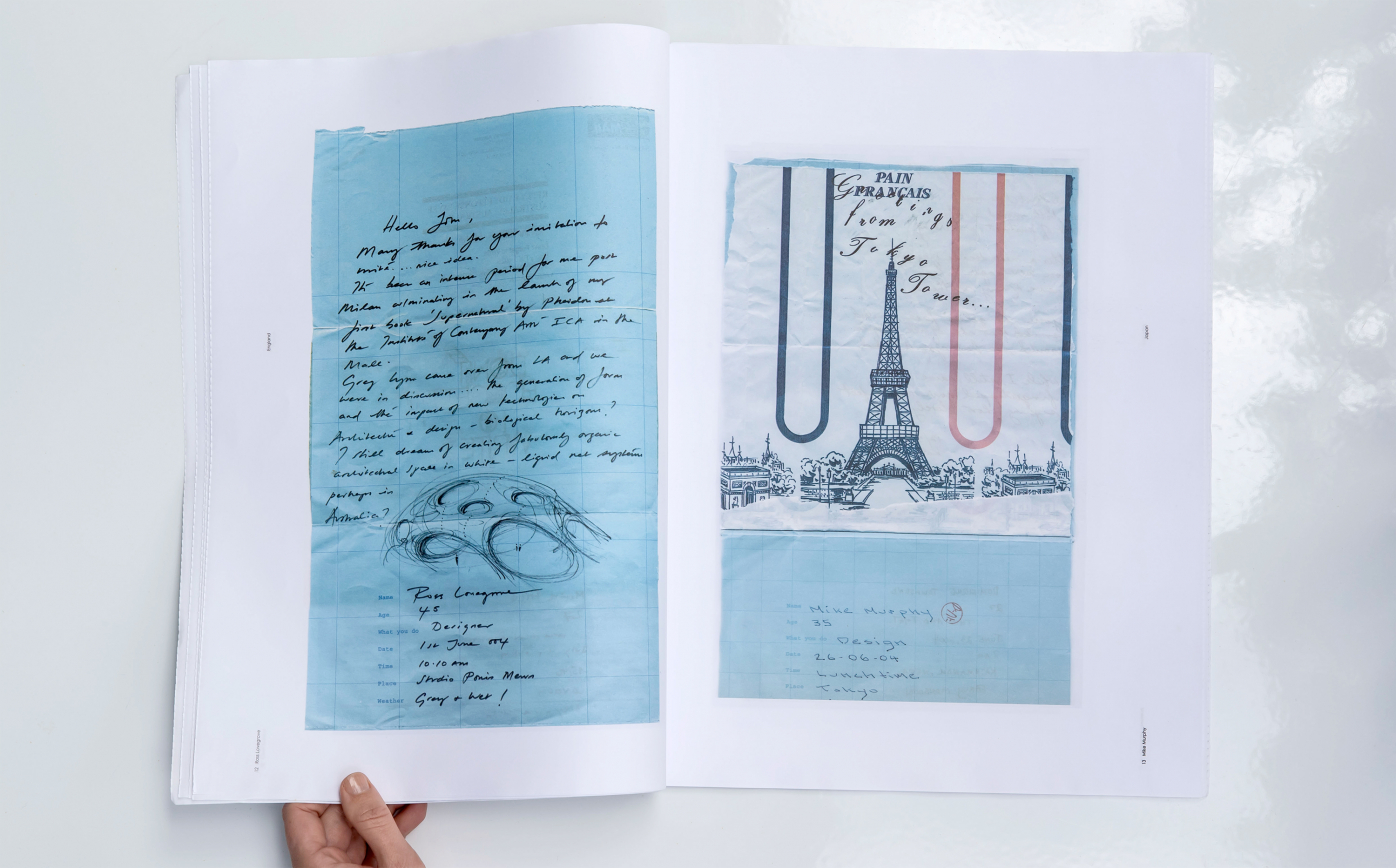 England
Hello Tom,
Many thanks for your invitation to
write....nice idea.
It's been an intense period for me post
Milan culminating in the launch of my
first book 'Supernatural' by Phaidon at
the Institute of Contempory Art ICA in the
Mall.
Greg Lynn came over from LA and we
were in discussion..... the generation of form
and the impact of new technologies on
& design – biological horizons?
I still dream of creating fabulously organic
space in white – liquid net system
perhaps in
Australia?
Name Ross Lovegrove
Age 45
What you do Designer
Date 1st June 004
Time 10.10 am
Place Studio Powis Mews
Weather Grey & wet!
12 Ross Lovegrove
PAIN
FRANÇAIS
Greetings
from
Tokyo
Tower...
Name Mike Murphy
Age 35
What you do Design
Date 26-06-04
Time Lunchtime
Place Tokyo
Japan
13 Mike Murphy